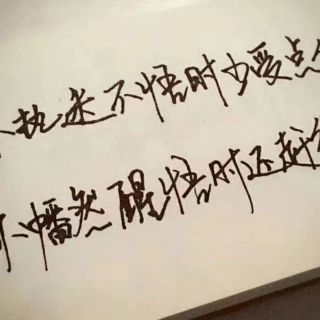 执迷不悟时少受点
幡然醒悟时还趁